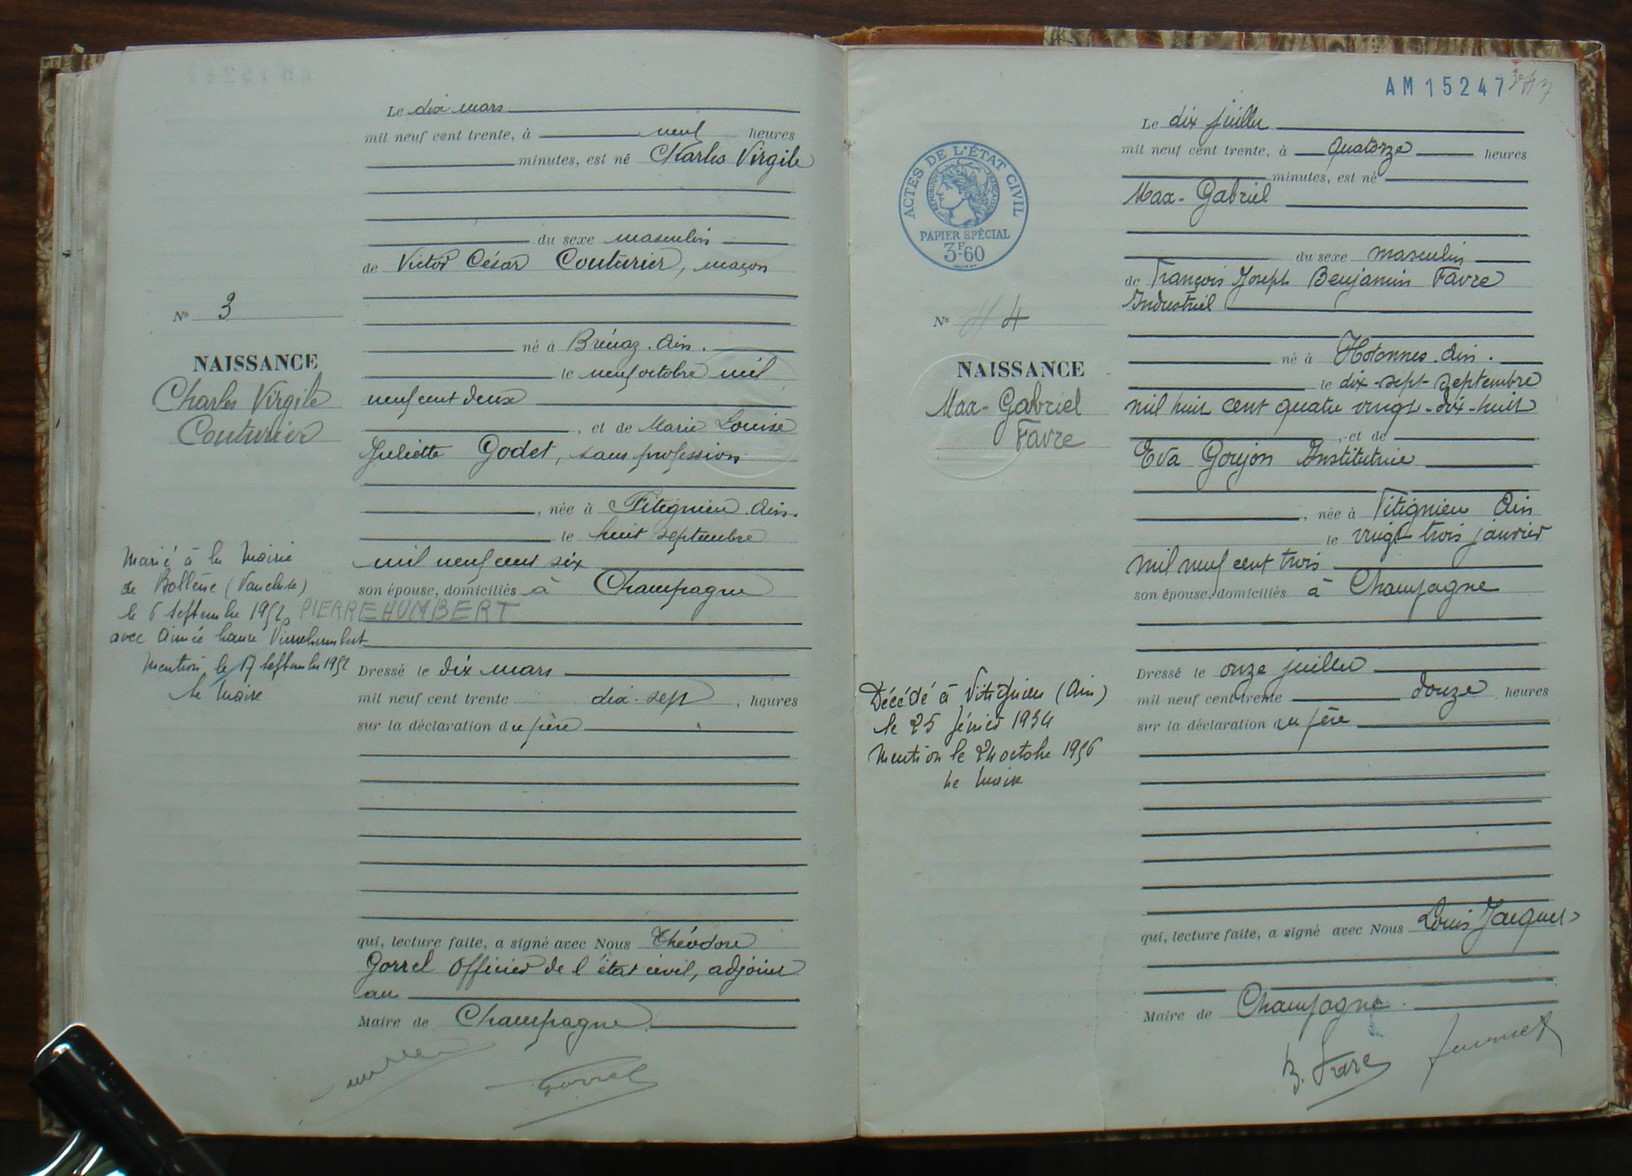 Le dix mars
mil neuf cent trente, à neuf heures
minutes, est né Charles Virgile
du sexe masculin
de Victor César Couturier, maçon
né à Brénaz. Ain.
le neuf octobre mil
neuf cent deux
, et de Marie Louise
Juliette Godet, sans profession
, née à Fitignieu. Ain.
le huit septembre
mil neuf cent six
son épouse, domiciliés à Champagne
Dressé le dix mars
mil neuf cent trente dix-sept, heures
sur la déclaration du père
qui, lecture faite, a signé avec Nous Théodore
Gorrel Officier de l'état civil, adjoint
au
Maire de Champagne.
Gorrel
No 3
NAISSANCE
Charles Virgile
Couturier
Marié à la Mairie
de Bollène (Vaucluse)
le 6 septembre 1952 PIERREHUMBERT
avec Aimée Laure Pierrehumbert
Mention le 17 septembre 1952
le Maire
AM 15247
Le dix juillet
mil neuf cent trente, à quatorze heures
minutes, est né
Max-Gabriel
du sexe masculin
de François Joseph Benjamin Favre
Industriel
né à Hotonnes. Ain.
le dix-sept-septembre
mil huit cent quatre vingt-dix-huit
, et de
Eva Goujon Institutrice
, née à Fitignieu Ain
le vingt trois janvier
mil neuf cent trois
son épouse, domiciliés à Champagne
Dressé le onze juillet
mil neuf cent trente douze, heures
sur la déclaration du père
qui, lecture faite, a signé avec Nous Louis Jacquet
Maire de Champagne.
B. Favre
ACTES DE L'ÉTAT CIVIL
RÉPUBLIQUE FRANÇAISE
PAPIER SPÉCIAL
3F60
No 4
NAISSANCE
Max-Gabriel
Favre
Décédé à Fitignieu (Ain)
le 25 février 1954
Mention le 24 octobre 1956
Le Maire